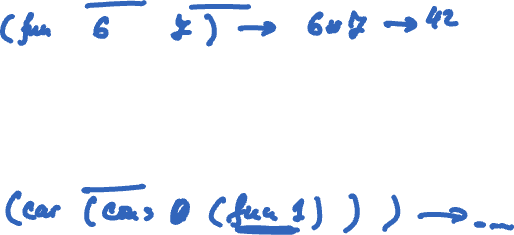 (fun 6 7) → 6*7 → 42
(car (cons 0 (fun 1))) → ...